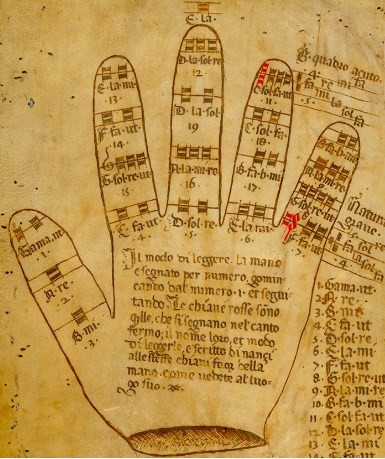 E · la ·
E · la · mi ·
· 13 ·
F · fa · ut ·
· 14 ·
G · sol · re · ut ·
· 15 ·
C · fa · ut ·
· 4 ·
D · la · sol · re
· 12 ·
D · la · sol
· 19 ·
A · la · mi · re ·
· 16 ·
D · sol · re ·
· 5 ·
C · sol · fa · ut
· 11 ·
C · sol · fa ·
· 18 ·
B · fa · b · mi ·
· 17 ·
E · la · mi ·
· 6 ·
B · fa · b · mi
A · la · mi · re
G · sol · re · ut
F · fa · ut ·
· 7 ·
Gama · ut ·
· 1 ·
A · re ·
· 2 ·
B · mi ·
· 3 ·
B · quadro acuto ·
· 4 ·
Il modo di leggere · la mano
e segnato per numero, comin
cando dal numero · 1 · et segui
tando · Le chiave rosse sono
qlle, che si segnano nel canto
fermo; il nome loro, et modo
di leggerle, e scritto di nanzi
alle stesse chiavi fuor della
mano, come vedete al luo-
go suo ·
1 · Gama · ut ·
2 · A · re ·
3 · B · mi
4 · C · fa · ut
5 · D · sol · re
6 · E · la · mi ·
7 · F · fa · ut
8 · G · sol · re · ut
9 · A · la · mi · re
10 · B · fa · b · mi
11 · C · sol · fa · ut
12 · D · la · sol · re
13 · E · la · mi
14 · F · fa · ut